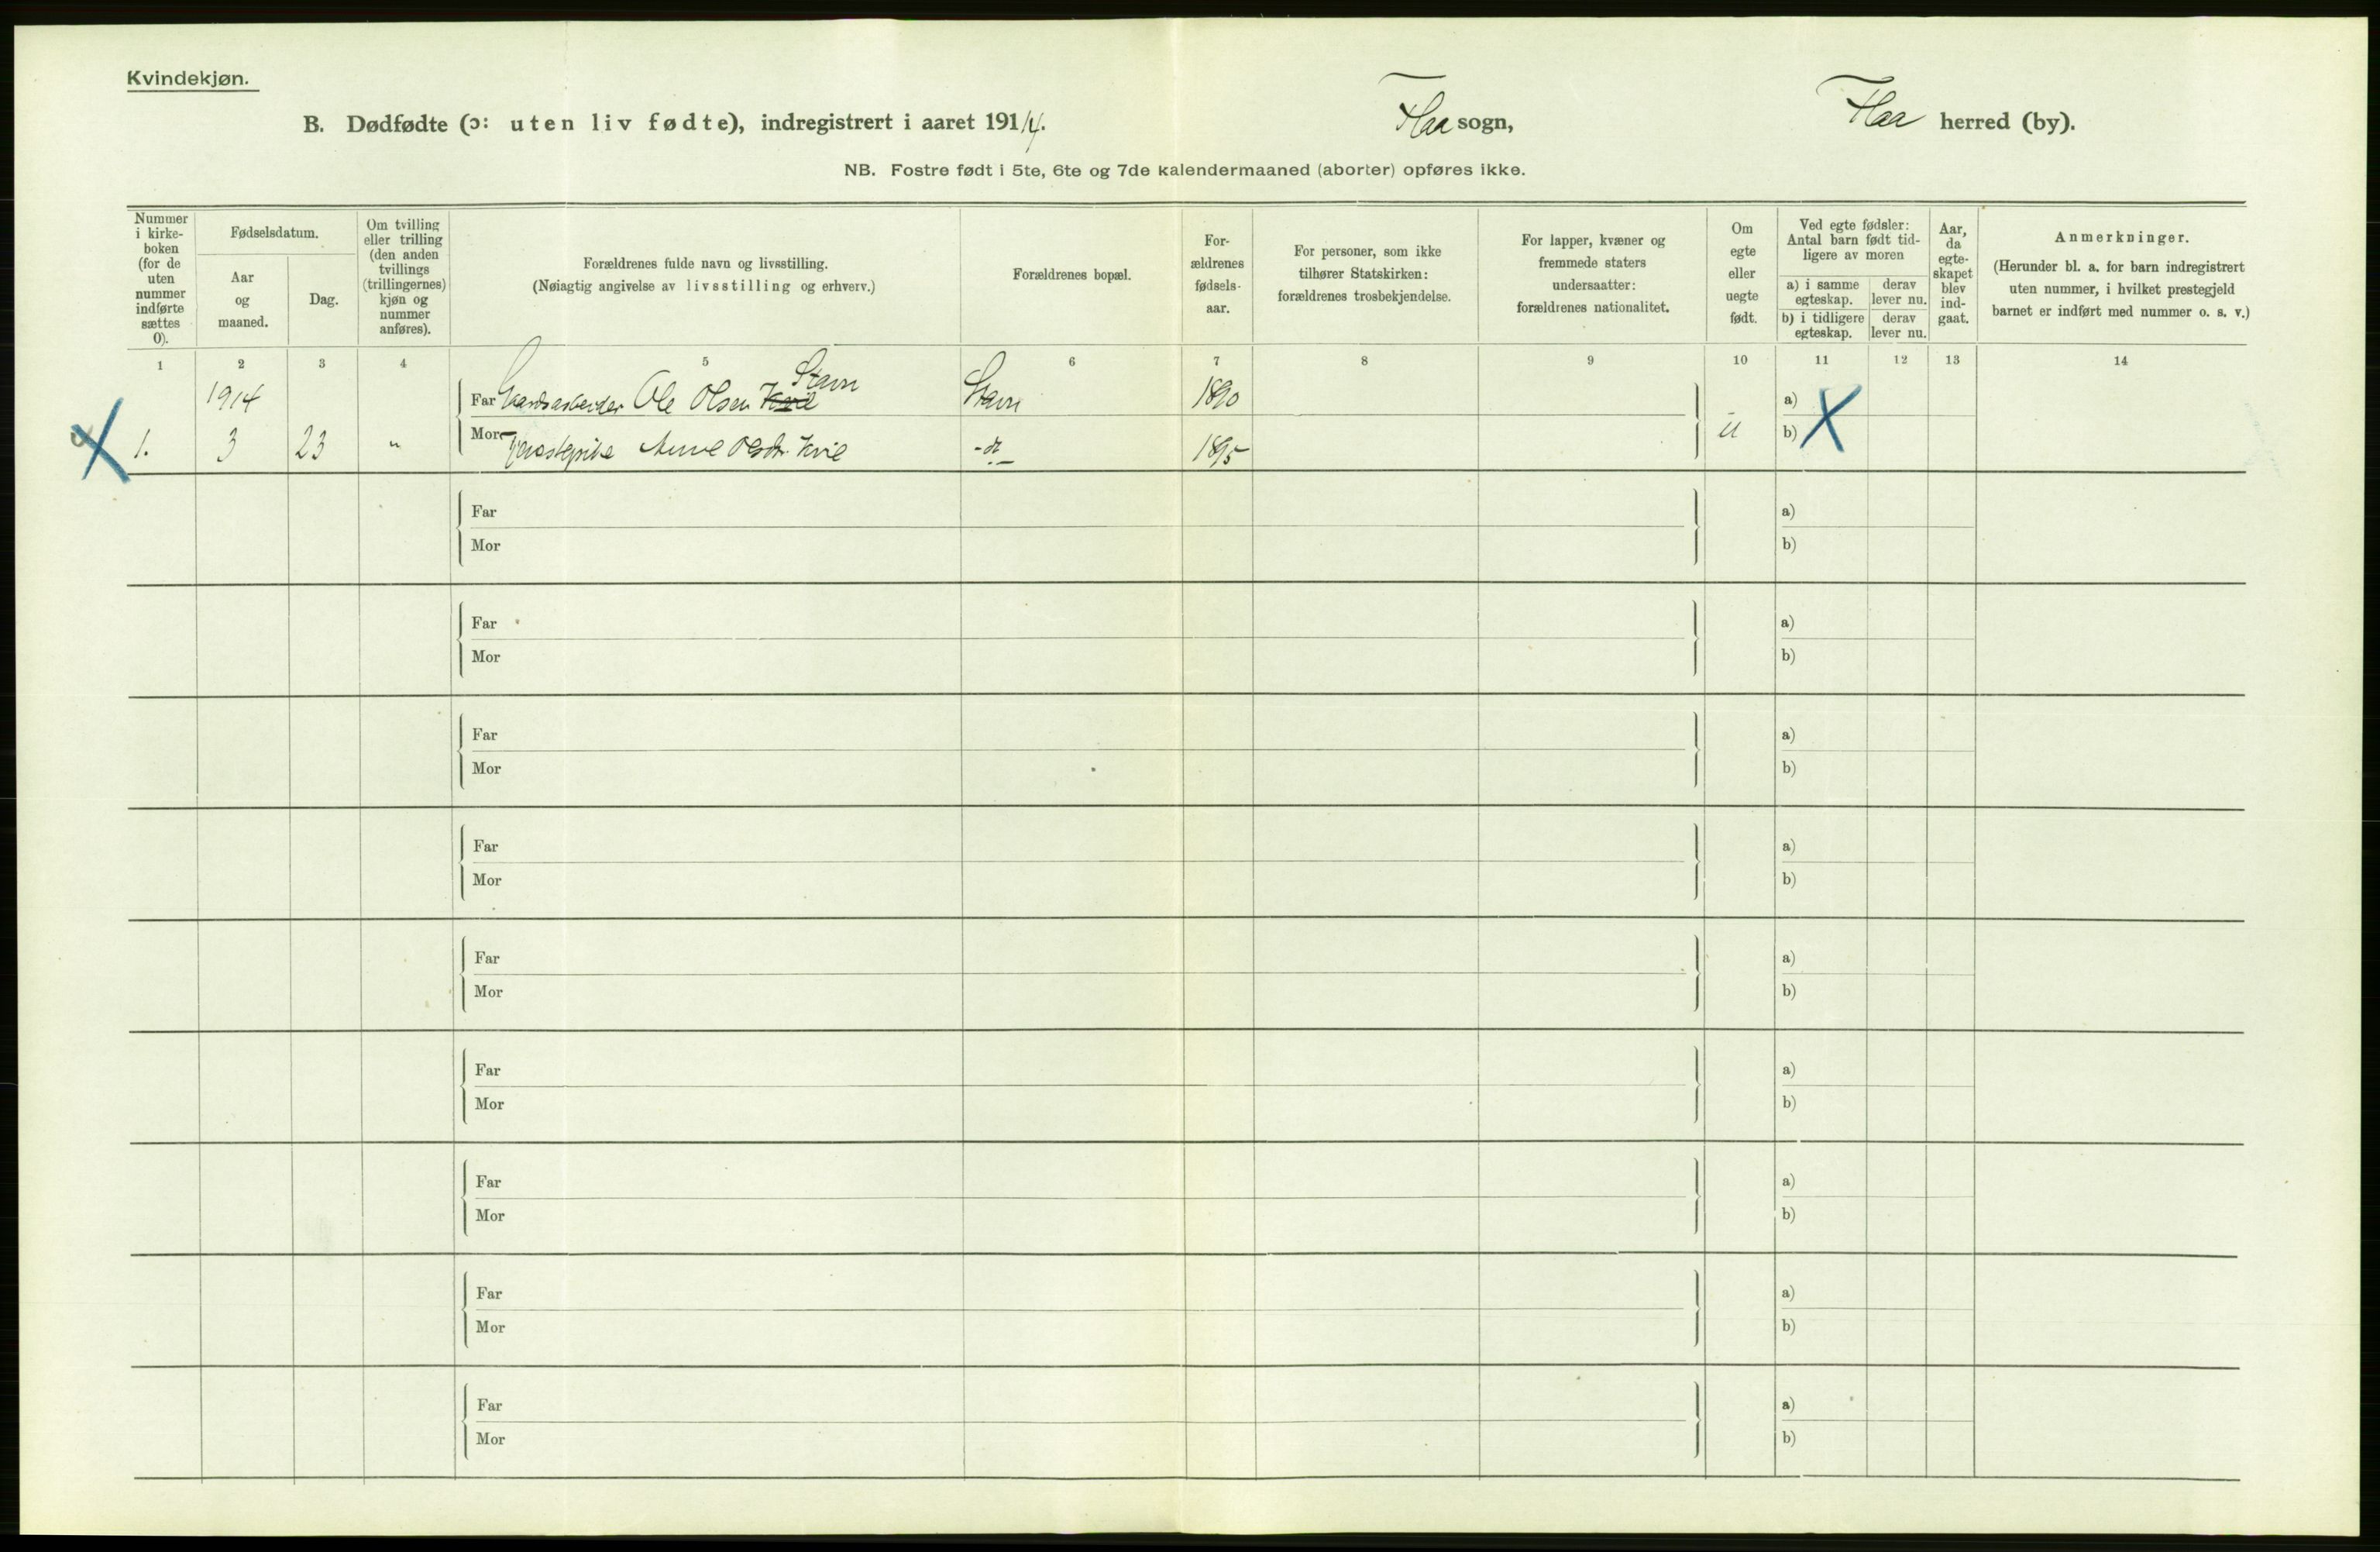 Kvindekjøn.
B. Dødfødte (ɔ: uten liv fødte), indregistrert i aaret 1914. Flaa sogn, Flaa herred (by).
NB. Fostre født i 5te, 6te og 7de kalendermaaned (aborter) opføres ikke.
Nummer
i kirke-
boken
(for de
uten
nummer
indførte
sættes
0).
Fødselsdatum.
Aar
og
maaned.
Dag.
Om tvilling
eller trilling
(den anden
tvillings
(trillingernes)
kjøn og
nummer
anføres).
Forældrenes fulde navn og livsstilling.
(Nøiagtig angivelse av livsstilling og erhverv.)
Forældrenes bopæl.
For-
ældrenes
fødsels-
aar.
For personer, som ikke
tilhører Statskirken:
forældrenes trosbekjendelse.
For lapper, kvæner og
fremmede staters
undersaatter:
forældrenes nationalitet.
Om
egte
eller
uegte
født.
Ved egte fødsler:
Antal barn født tid-
ligere av moren
a) i samme
egteskap.
derav
lever nu.
b) i tidligere
egteskap.
derav
lever nu.
Aar,
da
egte-
skapet
blev
ind-
gaat.
Anmerkninger.
(Herunder bl. a. for barn indregistrert
uten nummer, i hvilket prestegjeld
barnet er indført med nummer o. s. v.)
1 2 3 4 5 6 7 8 9 10 11 12 13 14
Stavn
1914 Far Gaardsarbeider Ole Olsen Kvie Stavn 1890 a)
1. 3 23 " Mor Anne Olsdtr. Kvie -d- 1895 u b)
Far a)
Mor b)
Far a)
Mor b)
Far a)
Mor b)
Far a)
Mor b)
Far a)
Mor b)
Far a)
Mor b)
Far a)
Mor b)
Far a)
Mor b)
Far a)
Mor b)